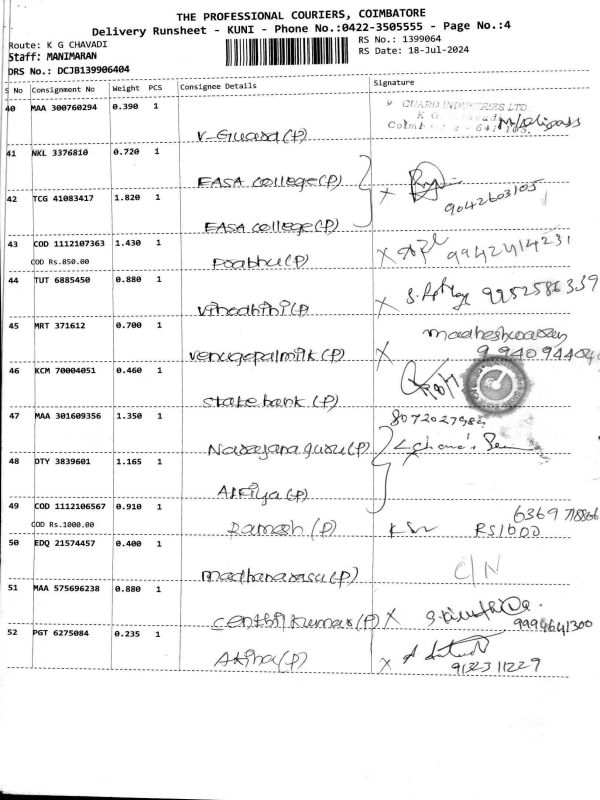 THE PROFESSIONAL COURIERS, COIMBATORE
Delivery Runsheet - KUNI - Phone No.:0422-3505555 - Page No.:4
Route: K G CHAVADI
RS No.: 1399064
Staff: MANIMARAN
RS Date: 18-Jul-2024
DRS No.: DCJB139906404
S No Consignment No Weight PCS Consignee Details Signature
40 MAA 300760294 0.390 1
V-Guard (P)
GUARD INDUSTRIES LTD
41 NKL 3376810 0.720 1
EASA college (P)
9042603105
42 TCG 41083417 1.820 1
EASA college (P)
43 COD 1112107363 1.430 1
COD Rs.850.00
Prabhu (P) X 9942414231
44 TUT 6885450 0.880 1
Vinedhihi (P) X 9952586339
45 MRT 371612 0.700 1
venugopal milk (P) X
46 KCM 70004051 0.460 1
state bank (P)
47 MAA 301609356 1.350 1
Narayana guru (P)
48 OTY 3839601 1.165 1
49 COD 1112106567 0.910 1
COD Rs.1000.00
Ramesh (P) RS1000
50 EDQ 21574457 0.400 1
C/N
51 MAA 575696238 0.880 1
Centhil kumar (P) X
9994641300
52 PGT 6275084 0.235 1
X